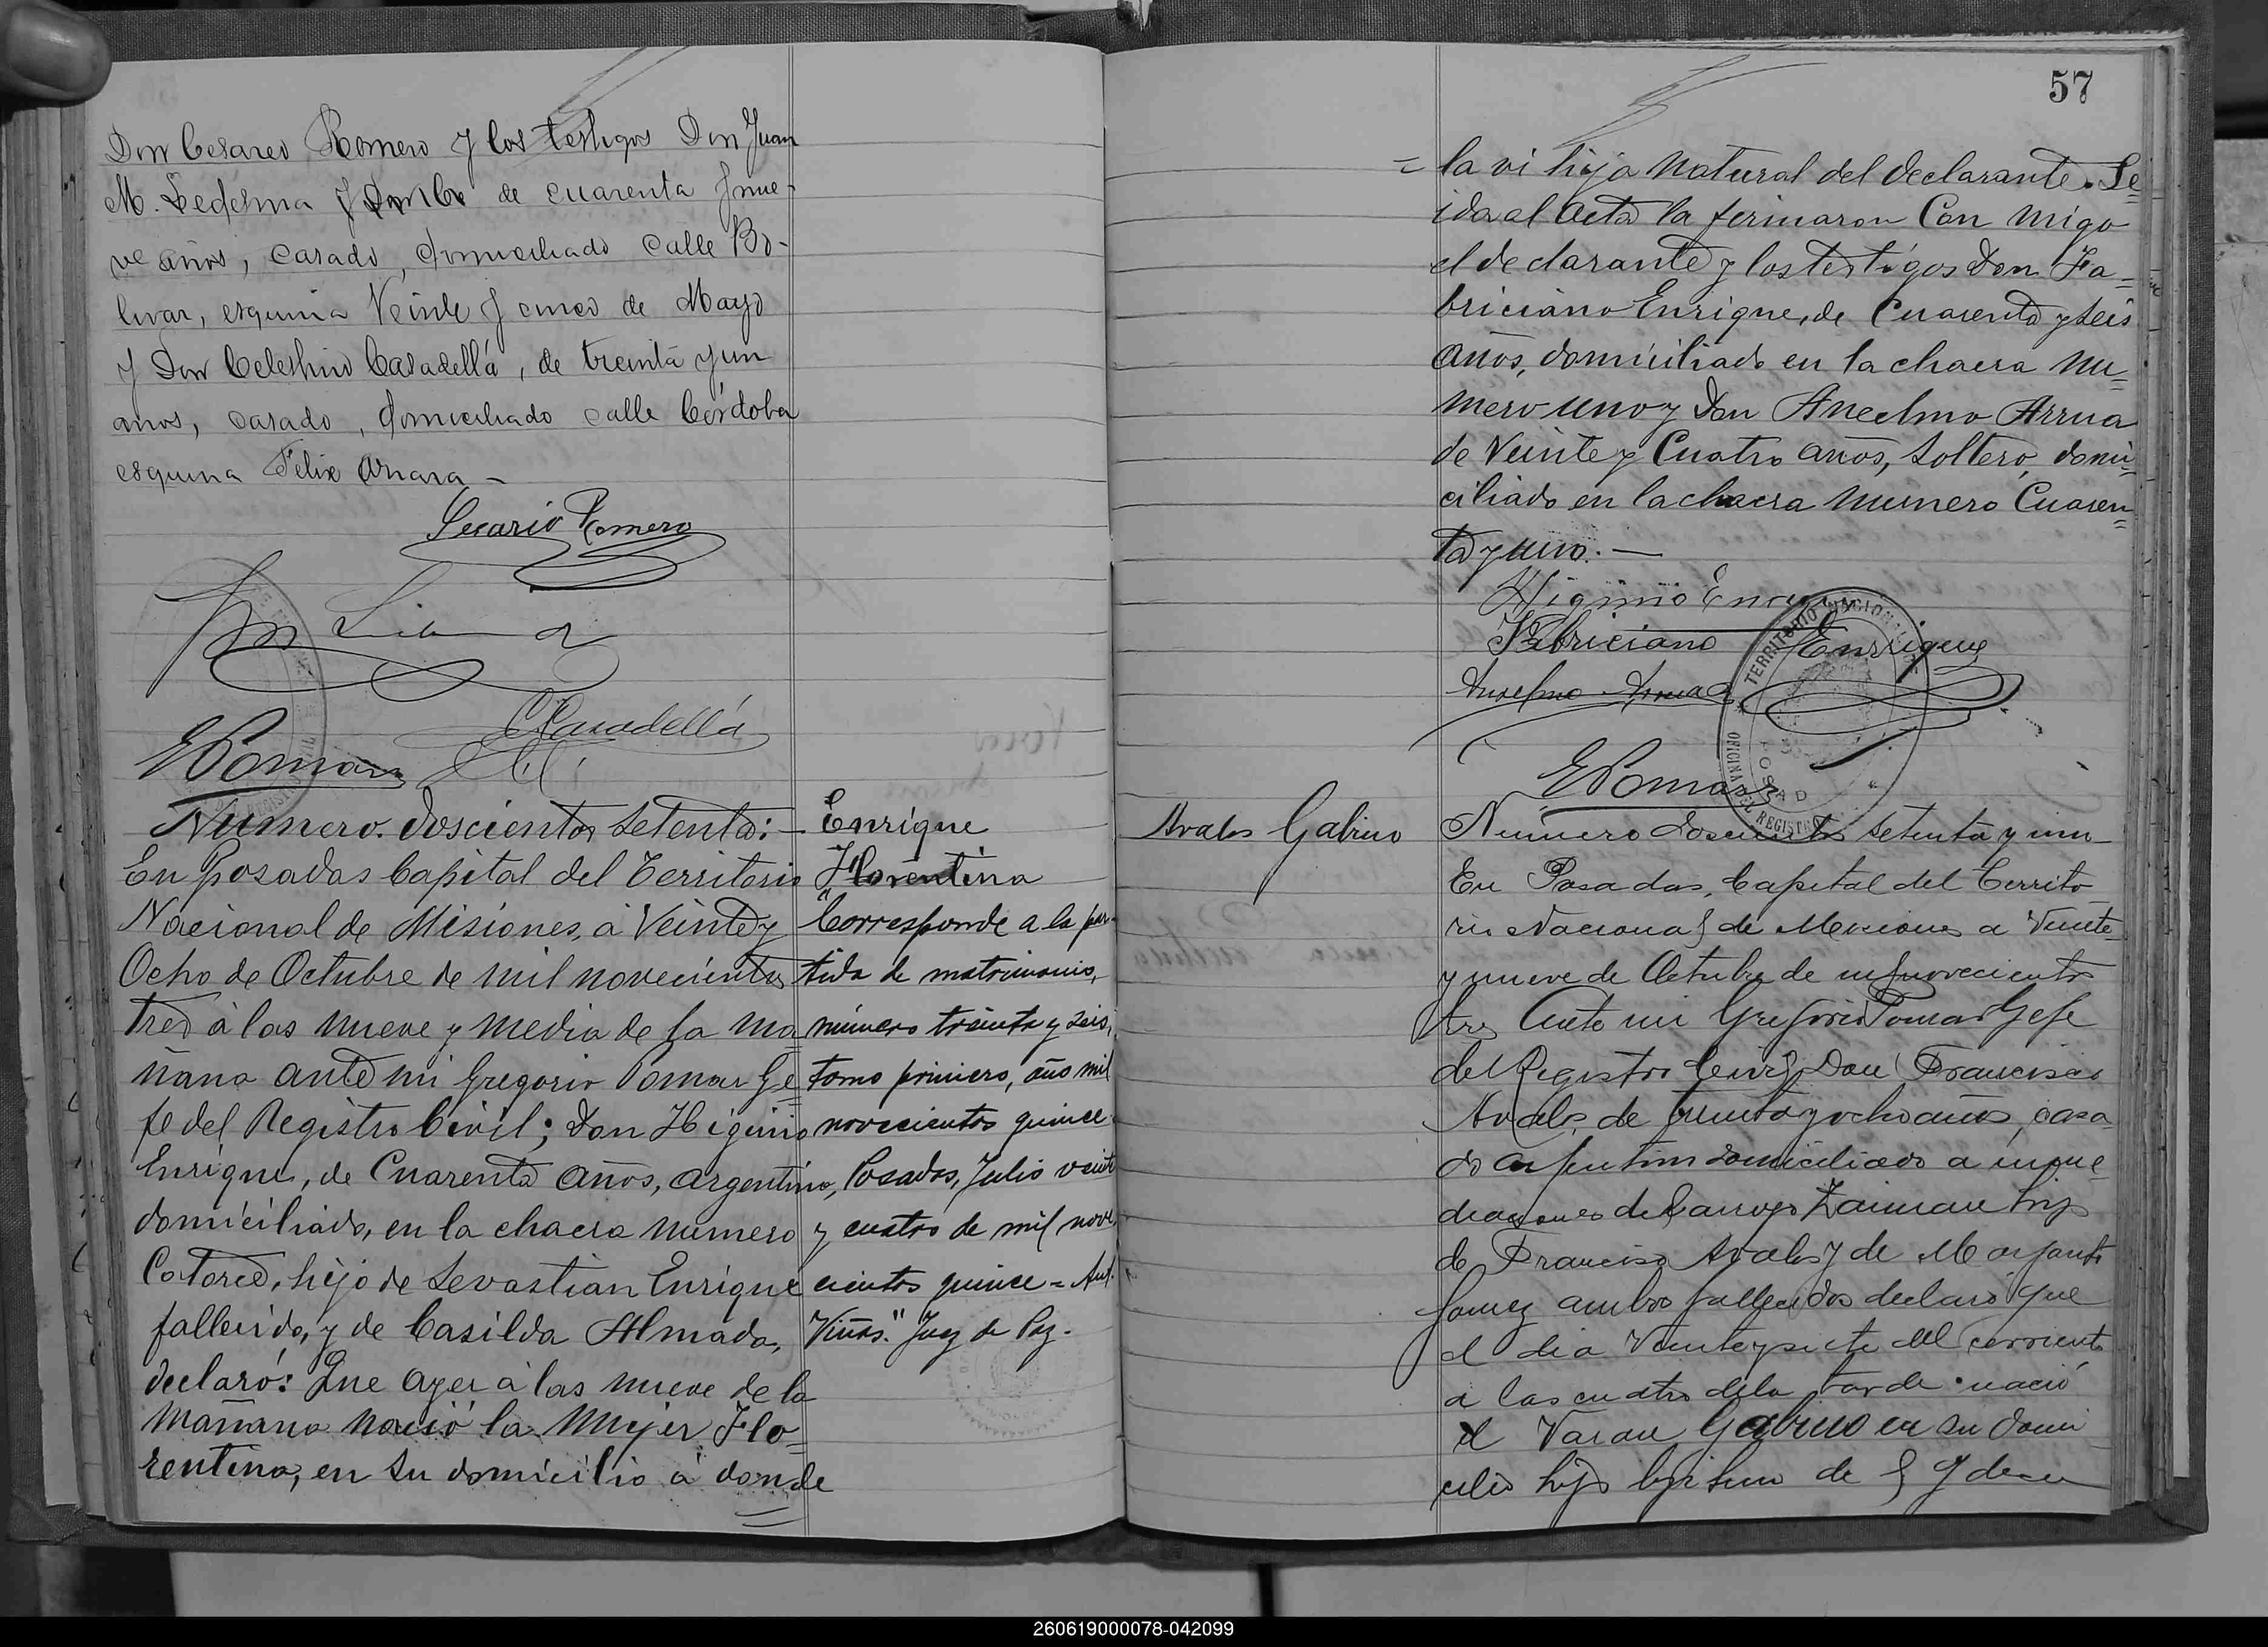 Don Cesareo Romero y los testigos Don Juan
M. Ledesma de cuarenta y nue-
ve años, casado, domiciliado calle Bo-
livar, esquina Veinte y cinco de Mayo
y Don Celestino Casadellá, de treinta y un
años, casado, domiciliado calle Córdoba
esquina Felix Azara -
Romero
CCasadellá
GPomar
Numero doscientos setenta: -
En Posadas Capital del Territorio
Nacional de Misiones, á Veinte y
Ocho de Octubre de mil novecientos
tres á las nueve y media de la ma
ñana ante mi Gregorio Pomar Ge=
fe del Registro Civil; Don Higinio
Enrique, de Cuarenta años, argentino,
domiciliado, en la chacra numero
Catorce, hijo de Sevastian Enrique
fallecido, y de Casilda Almada,
declaró: Que ayer á las nueve de la
mañana nació la mujer Flo=
rentina, en su domicilio á donde
Enrique
Florentina
"Corresponde a la par-
tida de matrimonio,
número treinta y seis,
tomo primero, año mil
novecientos quince
Posadas, Julio veinte
y cuatro de mil nove
cientos quince = Ant.
Viñas." Juez de Paz.
57
= la vi hija natural del declarante. Le=
ida el acta la firmaron Con migo
el declarante y los testigos Don Fa=
briciano Enrique, de Cuarenta y seis
años, domiciliado en la chacra nu=
mero uno y Don Anselmo Arrua
de Veinte y Cuatro años, soltero, domi=
ciliado en la chacra numero Cuaren=
ta y uno. —
Higinio Enrique
Fabriciano Enrique
Anselmo Arrua
TERRITORIO NACIONAL
POSADAS
REGISTRO
GPomar
Avalos Gabino
Numero doscientos setenta y uno
En Posadas, Capital del Territo
rio Nacional de Misiones a Veinte
y nueve de Octubre de mil novecientos
tres Ante mi Gregorio Pomar Gefe
del Registro Civil, Don Francisco
Avalos, de treinta y ocho años, casa
do argentino domiciliado a inme
diaciones del arroyo Zaiman hijo
de Francisco Avalos y de Margarita
Gomez ambos fallecidos declaró que
el dia Veinte y siete del corriente
a las cuatro de la tarde nació
el Varon Gabino en su domi
cilio hijo legitimo de el y de su